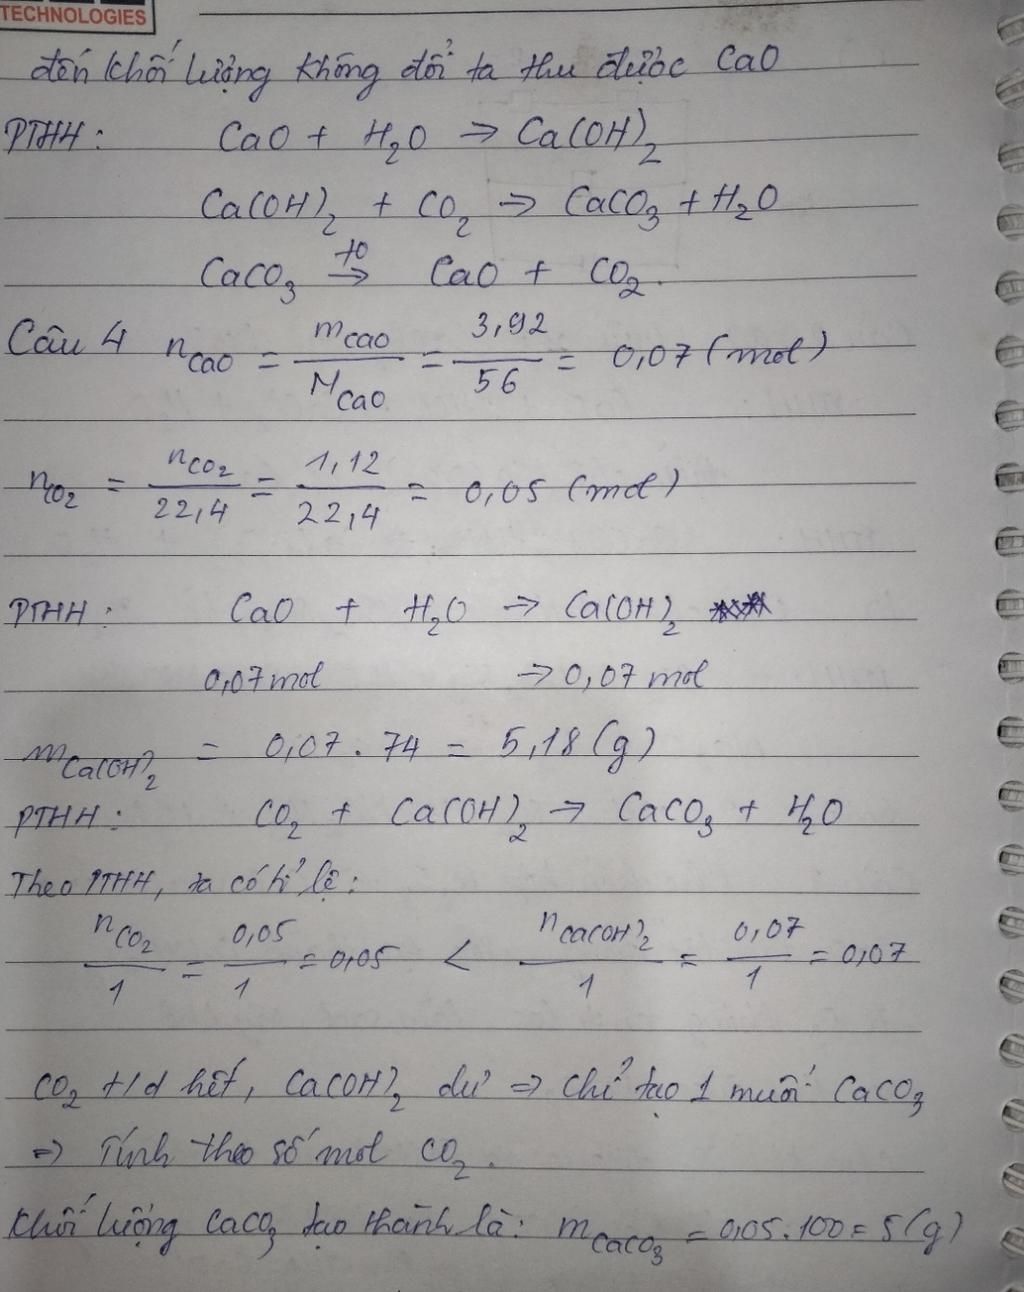 TECHNOLOGIES
đến khối lượng không đổi ta thu được CaO
PTHH: CaO + H₂O → Ca(OH)₂
Ca(OH)₂ + CO₂ → CaCO₃ + H₂O
CaCO₃ →(t⁰) CaO + CO₂.
Câu 4 n_CaO = m_CaO / M_CaO = 3,92 / 56 = 0,07 (mol)
n_CO₂ = n_CO₂ / 22,4 = 1,12 / 22,4 = 0,05 (mol)
PTHH: CaO + H₂O → Ca(OH)₂
0,07 mol → 0,07 mol
m_Ca(OH)₂ = 0,07 . 74 = 5,18 (g)
PTHH: CO₂ + Ca(OH)₂ → CaCO₃ + H₂O
Theo PTHH, ta có tỉ lệ:
n_CO₂ / 1 = 0,05 / 1 = 0,05 < n_Ca(OH)₂ / 1 = 0,07 / 1 = 0,07
CO₂ t/d hết, Ca(OH)₂ dư ⇒ chỉ tạo 1 muối CaCO₃
⇒ Tính theo số mol CO₂.
Khối lượng CaCO₃ tạo thành là: m_CaCO₃ = 0,05.100 = 5 (g)